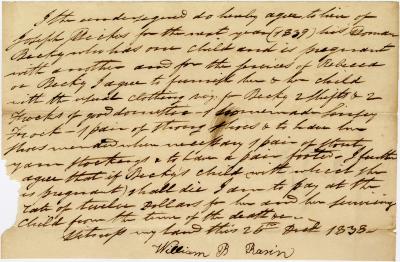 I the undersigned do hereby agree to hire of
Joseph Bricker for the next year (1839) his Woman
Becky who has one child and is pregnant
with another and for the services of Rebecca
or Becky I agree to furnish her & her child
with the usual clothing viz for Becky 2 Shifts & 2
Frocks of good domestic 1 homemade linsey
Frock 1 pair of strong shoes & to have her
shoes mended when necessary 1 pair of stout
yarn stockings & to have a pair footed. I further
agree that if Becky's child with which she
is pregnant) shall die I am to pay at the
rate of twelve Dollars for her and her surviving
child from the time of the death &c
Witness my hand this 26th Dect 1838
William B Rasin